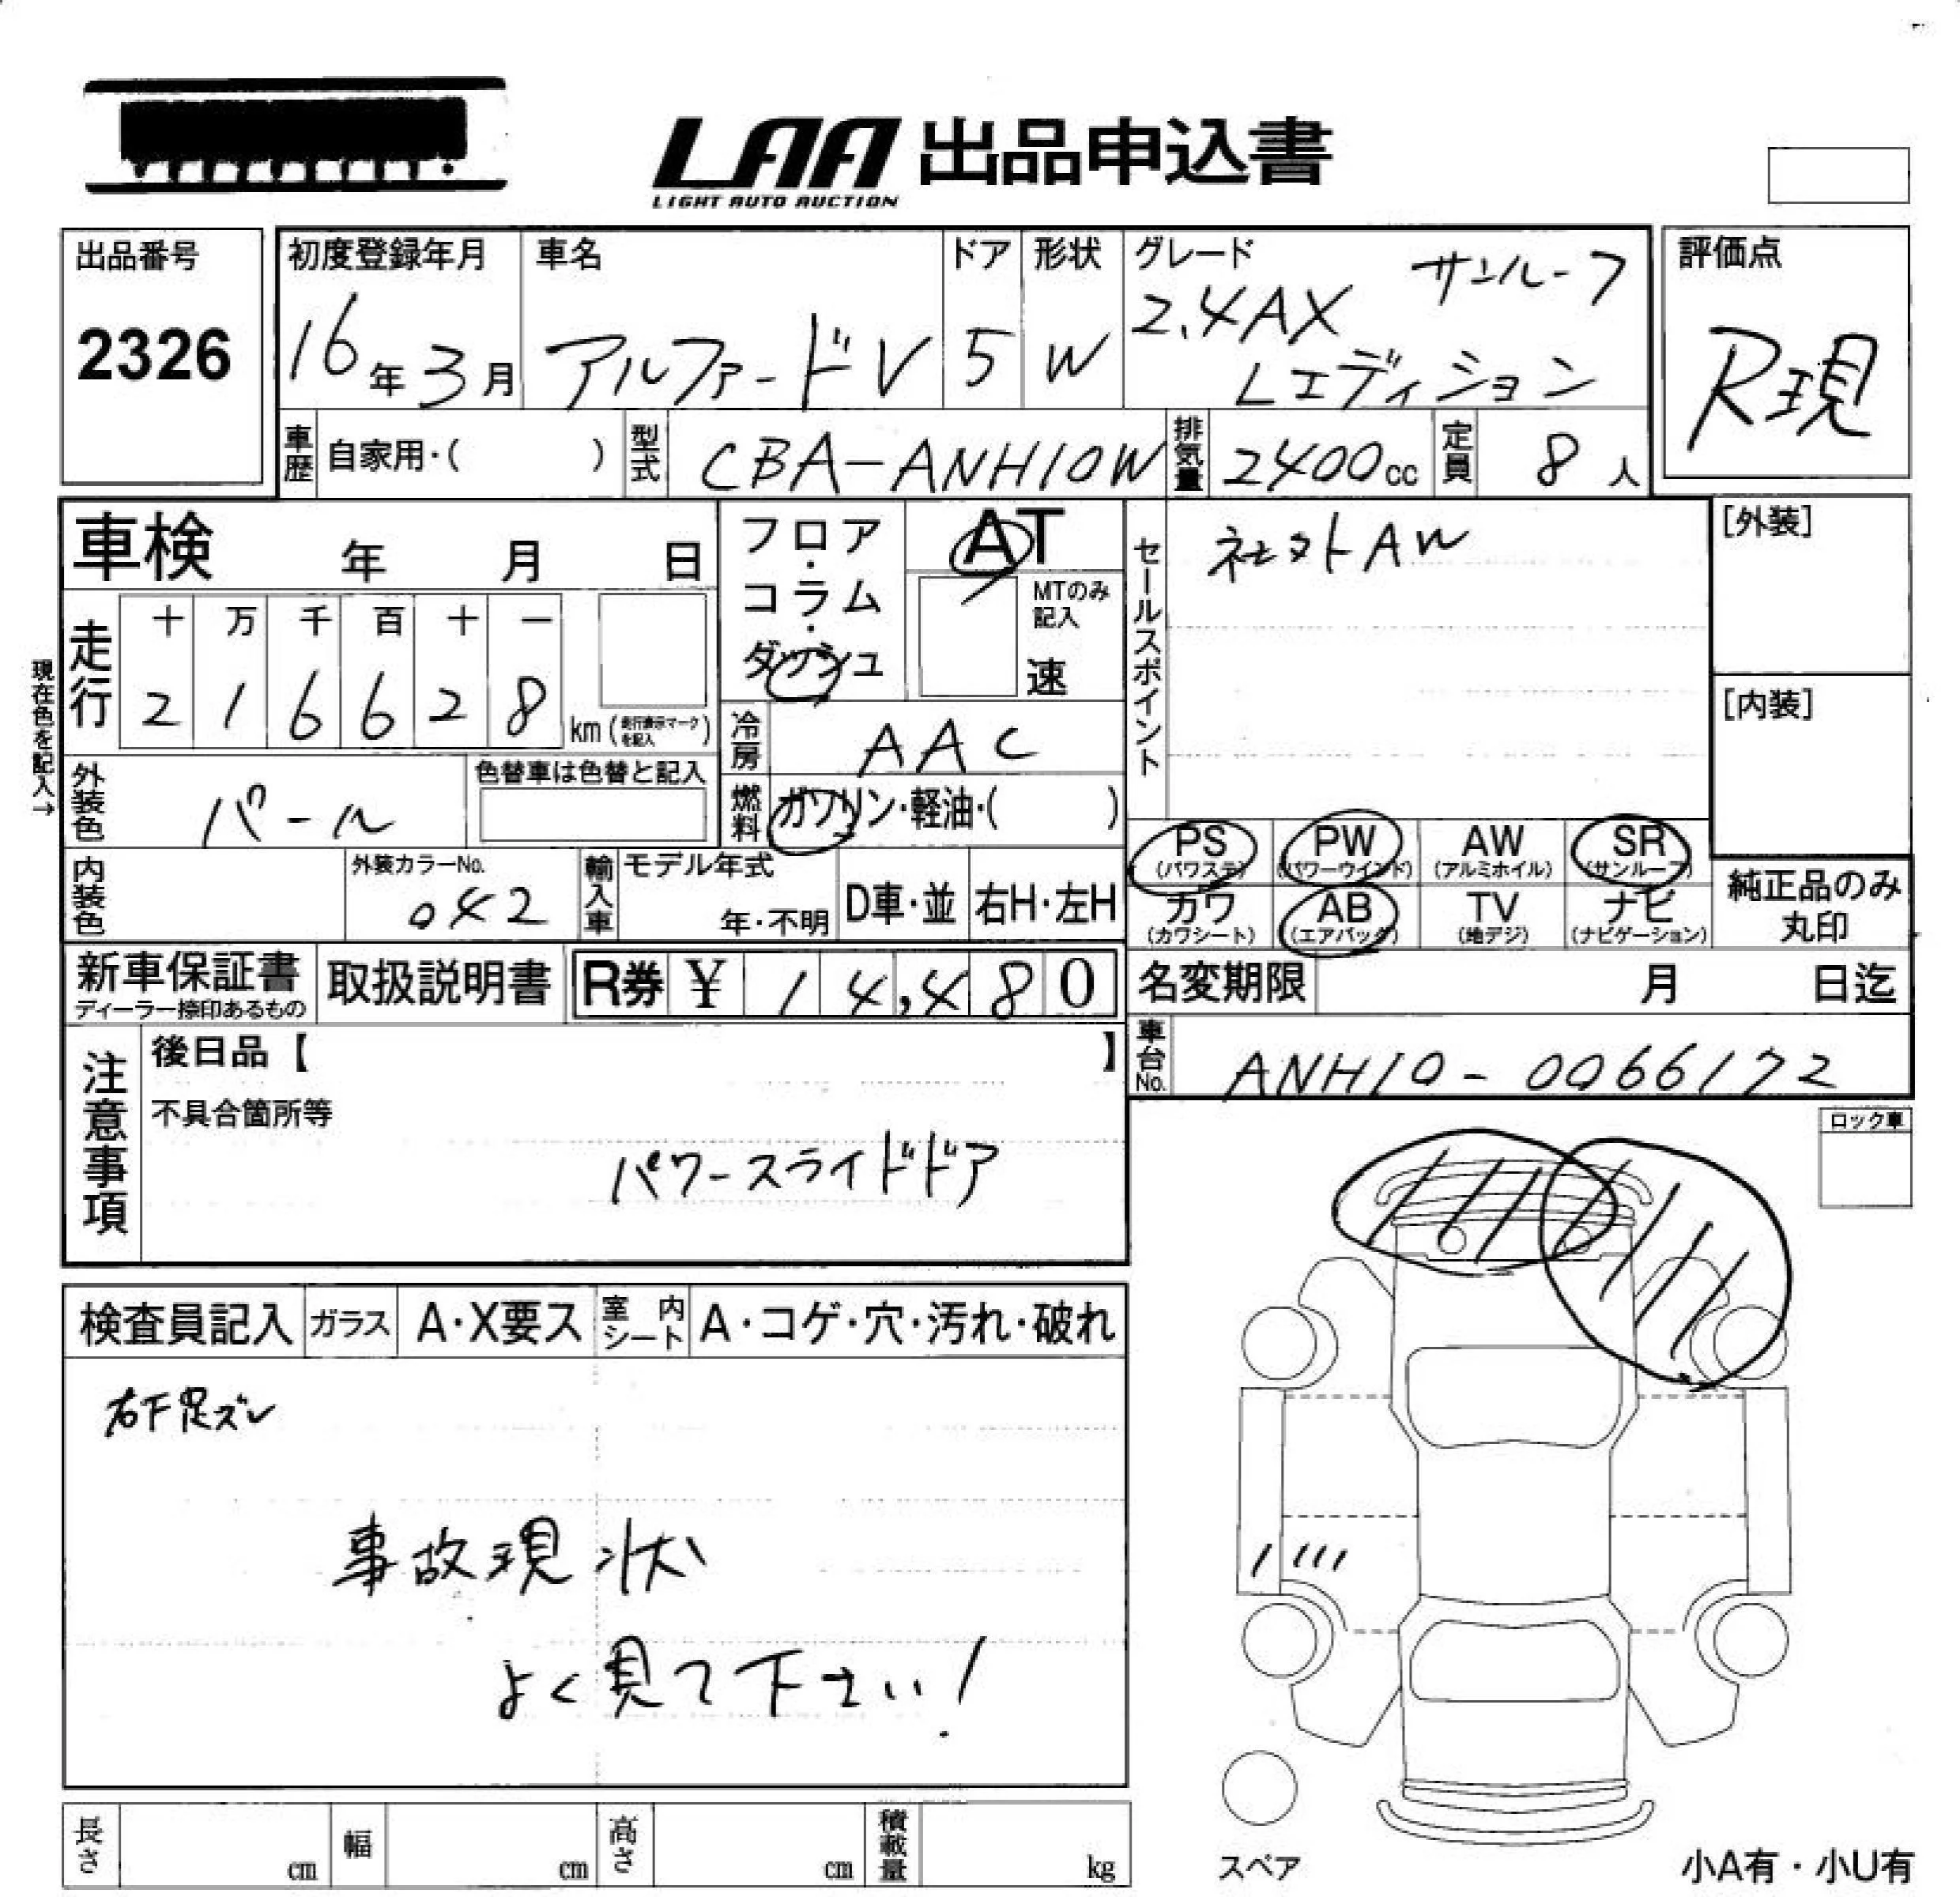 LAA 出品申込書
LIGHT AUTO AUCTION
出品番号
2326
初度登録年月
16年3月
車名
アルファードV
ドア
5
形状
W
グレード
サンルーフ
2.4AX
Lエディション
評価点
R現
車歴
自家用・( )
型式
CBA-ANH10W
排気量
2400cc
定員
8人
車検 年 月 日
フロア・コラム・ダッシュ
AT
MTのみ記入
速
セールスポイント
社外AW
[外装]
[内装]
現在色を記入→
走行
十 万 千 百 十 一
2 1 6 6 2 8
km (走行表示マークを記入)
冷房
AAC
燃料
ガソリン・軽油・( )
外装色
パール
色替車は色替と記入
内装色
外装カラーNo.
042
輸入車
モデル年式
年・不明
D車・並
右H・左H
PS (パワステ)
PW (パワーウインド)
AW (アルミホイル)
SR (サンルーフ)
カワ (カワシート)
AB (エアバック)
TV (地デジ)
ナビ (ナビゲーション)
純正品のみ
丸印
新車保証書
ディーラー捺印あるもの
取扱説明書
R券 ¥ 14,480
名変期限 月 日迄
車台No.
ANH10-0066172
注意事項
後日品【 】
不具合箇所等
パワースライドドア
ロック車
検査員記入
ガラス
A・X要ス
室内シート
A・コゲ・穴・汚れ・破れ
右下足ズレ
事故現状
よく見て下さい!
長さ cm
幅 cm
高さ cm
積載量 kg
スペア
小A有・小U有